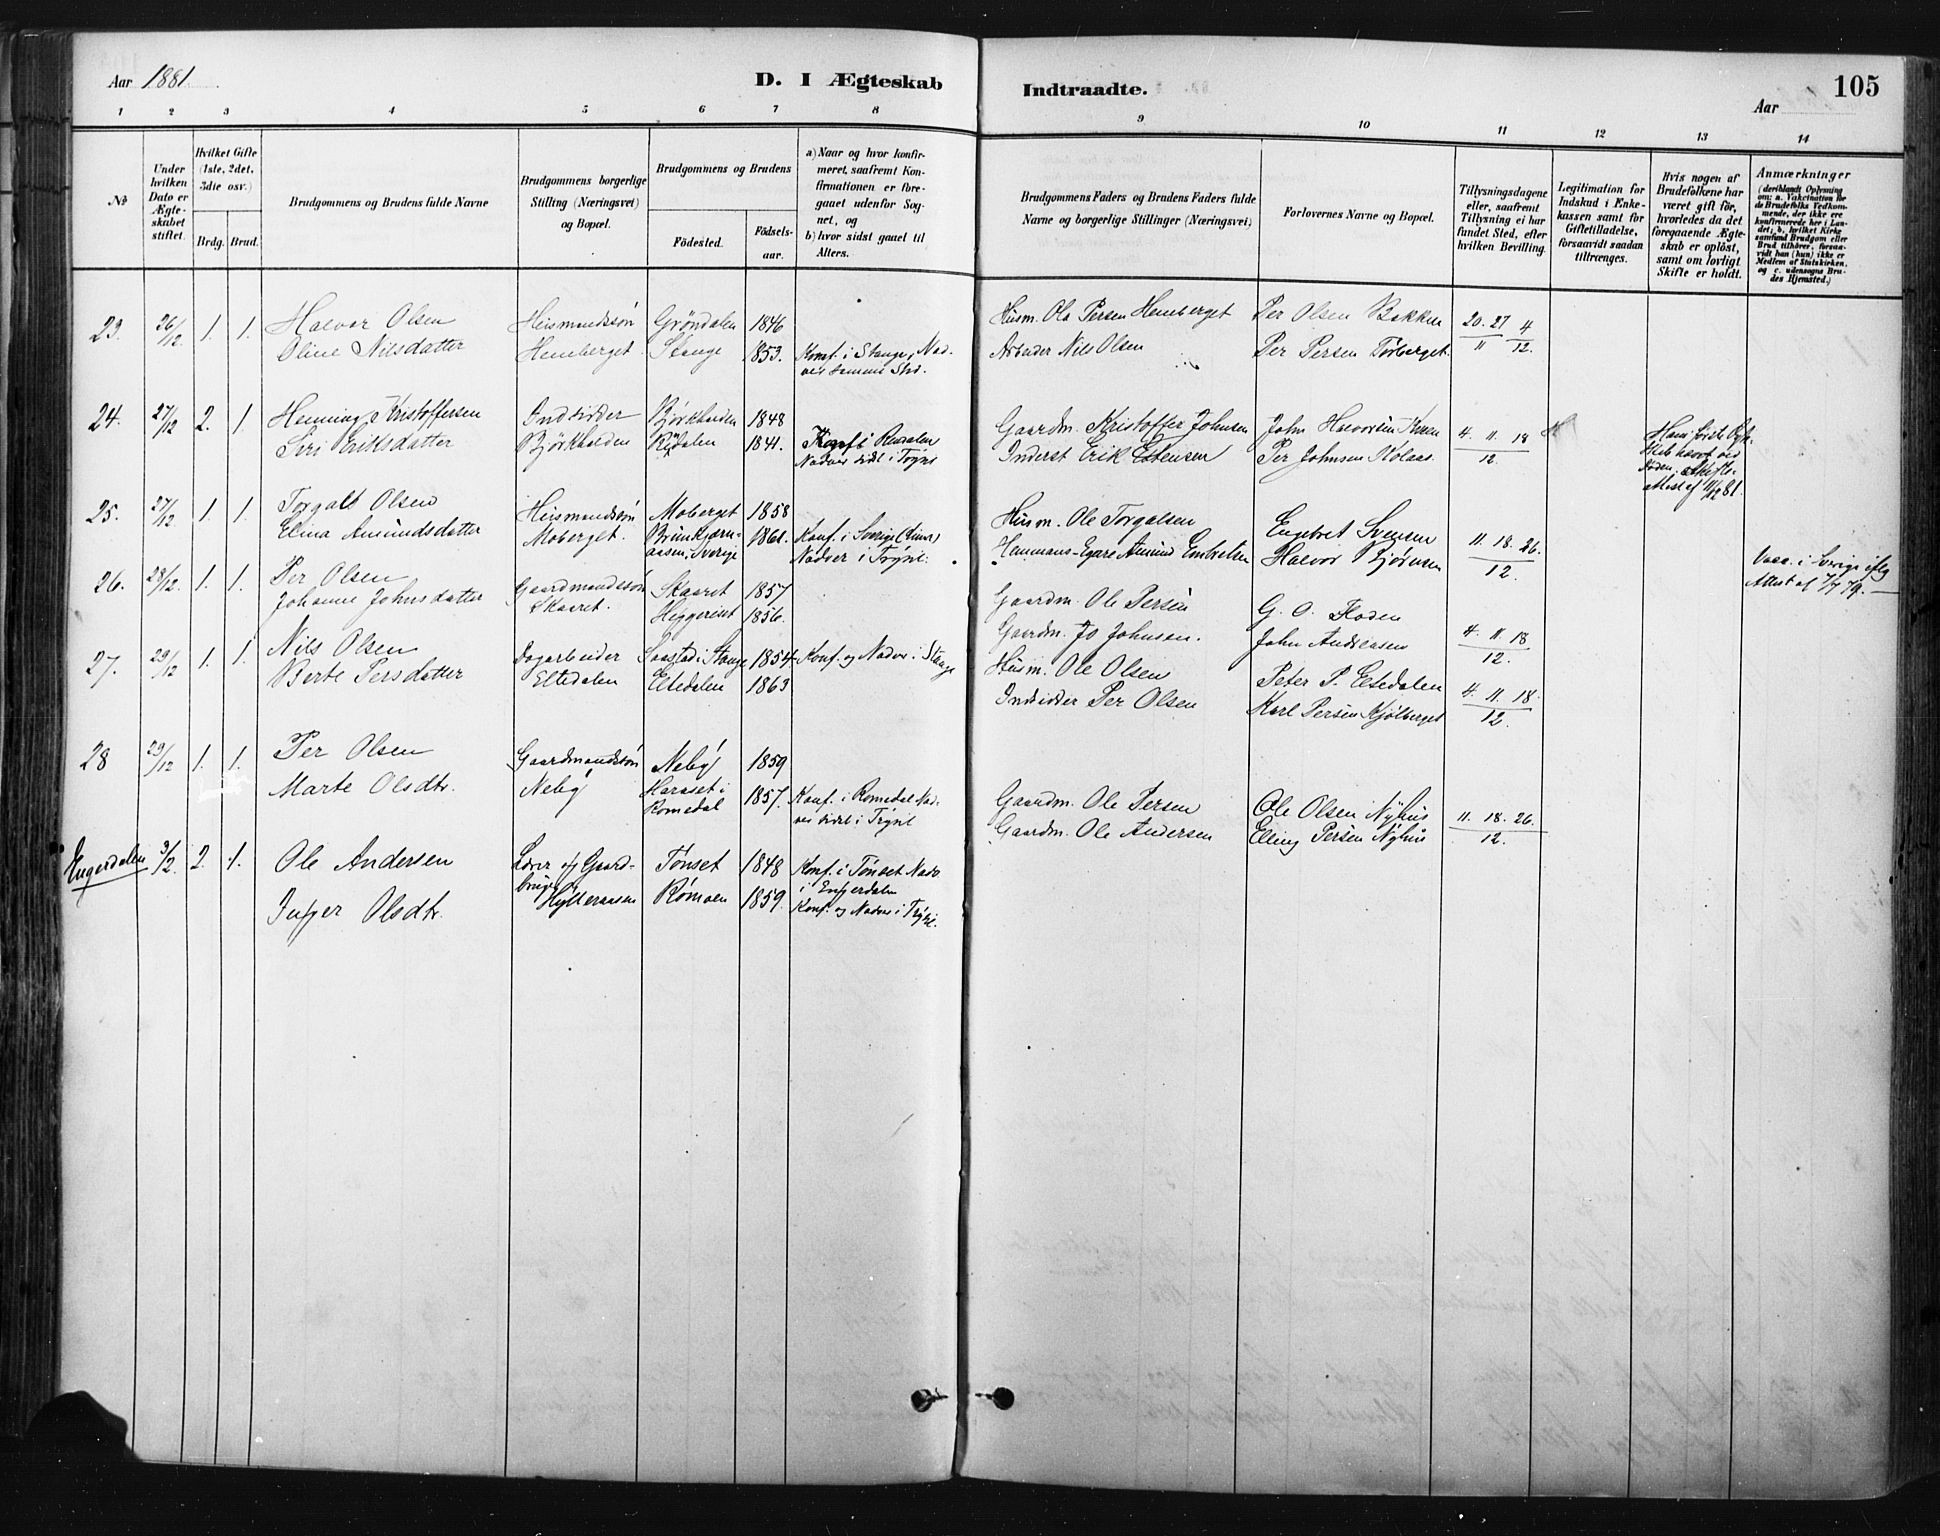 Aar 1881.
D. I Ægteskab
Indtraadte.
105
Aar
1 2 3 4 5 6 7 8
9 10 11 12 13 14
No
Under hvilken Dato er Ægteskabet stiftet.
Hvilket Gifte (1ste, 2det, 3die osv.)
Brdg. Brud.
Brudgommens og Brudens fulde Navne
Brudgommens borgerlige Stilling (Næringsvei) og Bopæl.
Brudgommens og Brudens
Fødested.
Fødselsaar.
a) Naar og hvor konfirmeret, saafremt Konfirmationen er foregaaet udenfor Sognet, og
b) hvor sidst gaaet til Alters.
Brudgommens Faders og Brudens Faders fulde Navne og borgerlige Stillinger (Næringsvei)
Forlovernes Navne og Bopæl.
Tillysningsdagene eller, saafremt Tillysning ei har fundet Sted, efter hvilken Bevilling.
Legitimation for Indskud i Enkekassen samt for Giftetilladelse, forsaavidt saadan tiltrænges.
Hvis nogen af Brudefolkene har været gift før, hvorledes da det foregaaende Ægteskab er opløst, samt om lovligt Skifte er holdt.
Anmærkninger
(deriblandt Oplysning om: a. Vaccination for de Brudefolks Vedkommende, der ikke ere konfirmerede her i Landet; b. hvilket Kirkesamfund Brudgom eller Brud tilhører, forsaavidt han (hun) ikke er Medlem af Statskirken, og c. udensogns Brudes Hjemsted.)
23. 26/12 1. 1. Halvor Olsen Husmandssøn Grøndalen 1846 Husm. Ola Persen Hemberget Per Olsen Bakken 20. 27 4
Oline Nilsdatter Hemberget. Stange 1853. Konf. i Stange, Nadver samme Sted. Arbeider Nils Olsen Per Persen Torberget. 11 12.
24. 27/12 2. 1. Henning Kristoffersen Indsidder Bjørkhalden 1848 Gaardm. Kristoffer Johnsen John Halvorsen 4. 11. 18
Siri Eriksdatter Bjørkhalden 1841. Konf. i Rendalen Nadver sidst i Trysil Inderst Erik Estensen Per Johnsen Kolaas. 12.
25. 27/12 1. 1. Torgals Olsen Husmandssøn Moberget 1858 Husm. Ole Torgalsen Engebret Svensen 11. 18. 26.
Elina Amundsdatter Moberget. Sverige 1861. Konf. i Sverige (Lima) Nadver i Trysil. Hemmans-Egare Amund Embretsen Halvor Bjørnsen 12. Vacc. i Sverige iflg Attest af
26. 28/12. 1. 1. Per Olsen Gaardmandssøn Skaaret 1857 Gaardm. Ole Persen G. O. Floden 4. 11. 18
Johanne Johnsdatter Skaaret. 1856. Gaardm. Jo Johnsen. John Andreasen 12.
27. 29/12 1. 1. Nils Olsen Dagarbeider i Stange 1854 Konf. og Nadv. i Stange Husm. Ole Olsen Peter P. Eltedalen 4. 11. 18.
Berte Persdatter Eltedalen Eltedalen 1863 Indsidder Per Olsen Karl Persen Kjølberget 12.
28 29/12 1. 1. Per Olsen Gaardmandssøn Neby 1859 Gaardm. Ole Persen Ole Olsen Nyhus 11. 18. 26.
Marte Olsdtr. Neby Haraset i Romedal 1857. Konf. i Romedal Nadver sidst i Trysil Gaardm. Ole Andersen Elling Persen Nyhus 12.
Engerdalen 3/2. 2. 1. Ole Andersen Lærer og Gaardbruger Tønset 1848 Konf. i Tønset Nadv. i Engerdalen
Inger Olsdtr. Hylleraasen Rømoen 1859. Konf. og Nadv. i Trysil.